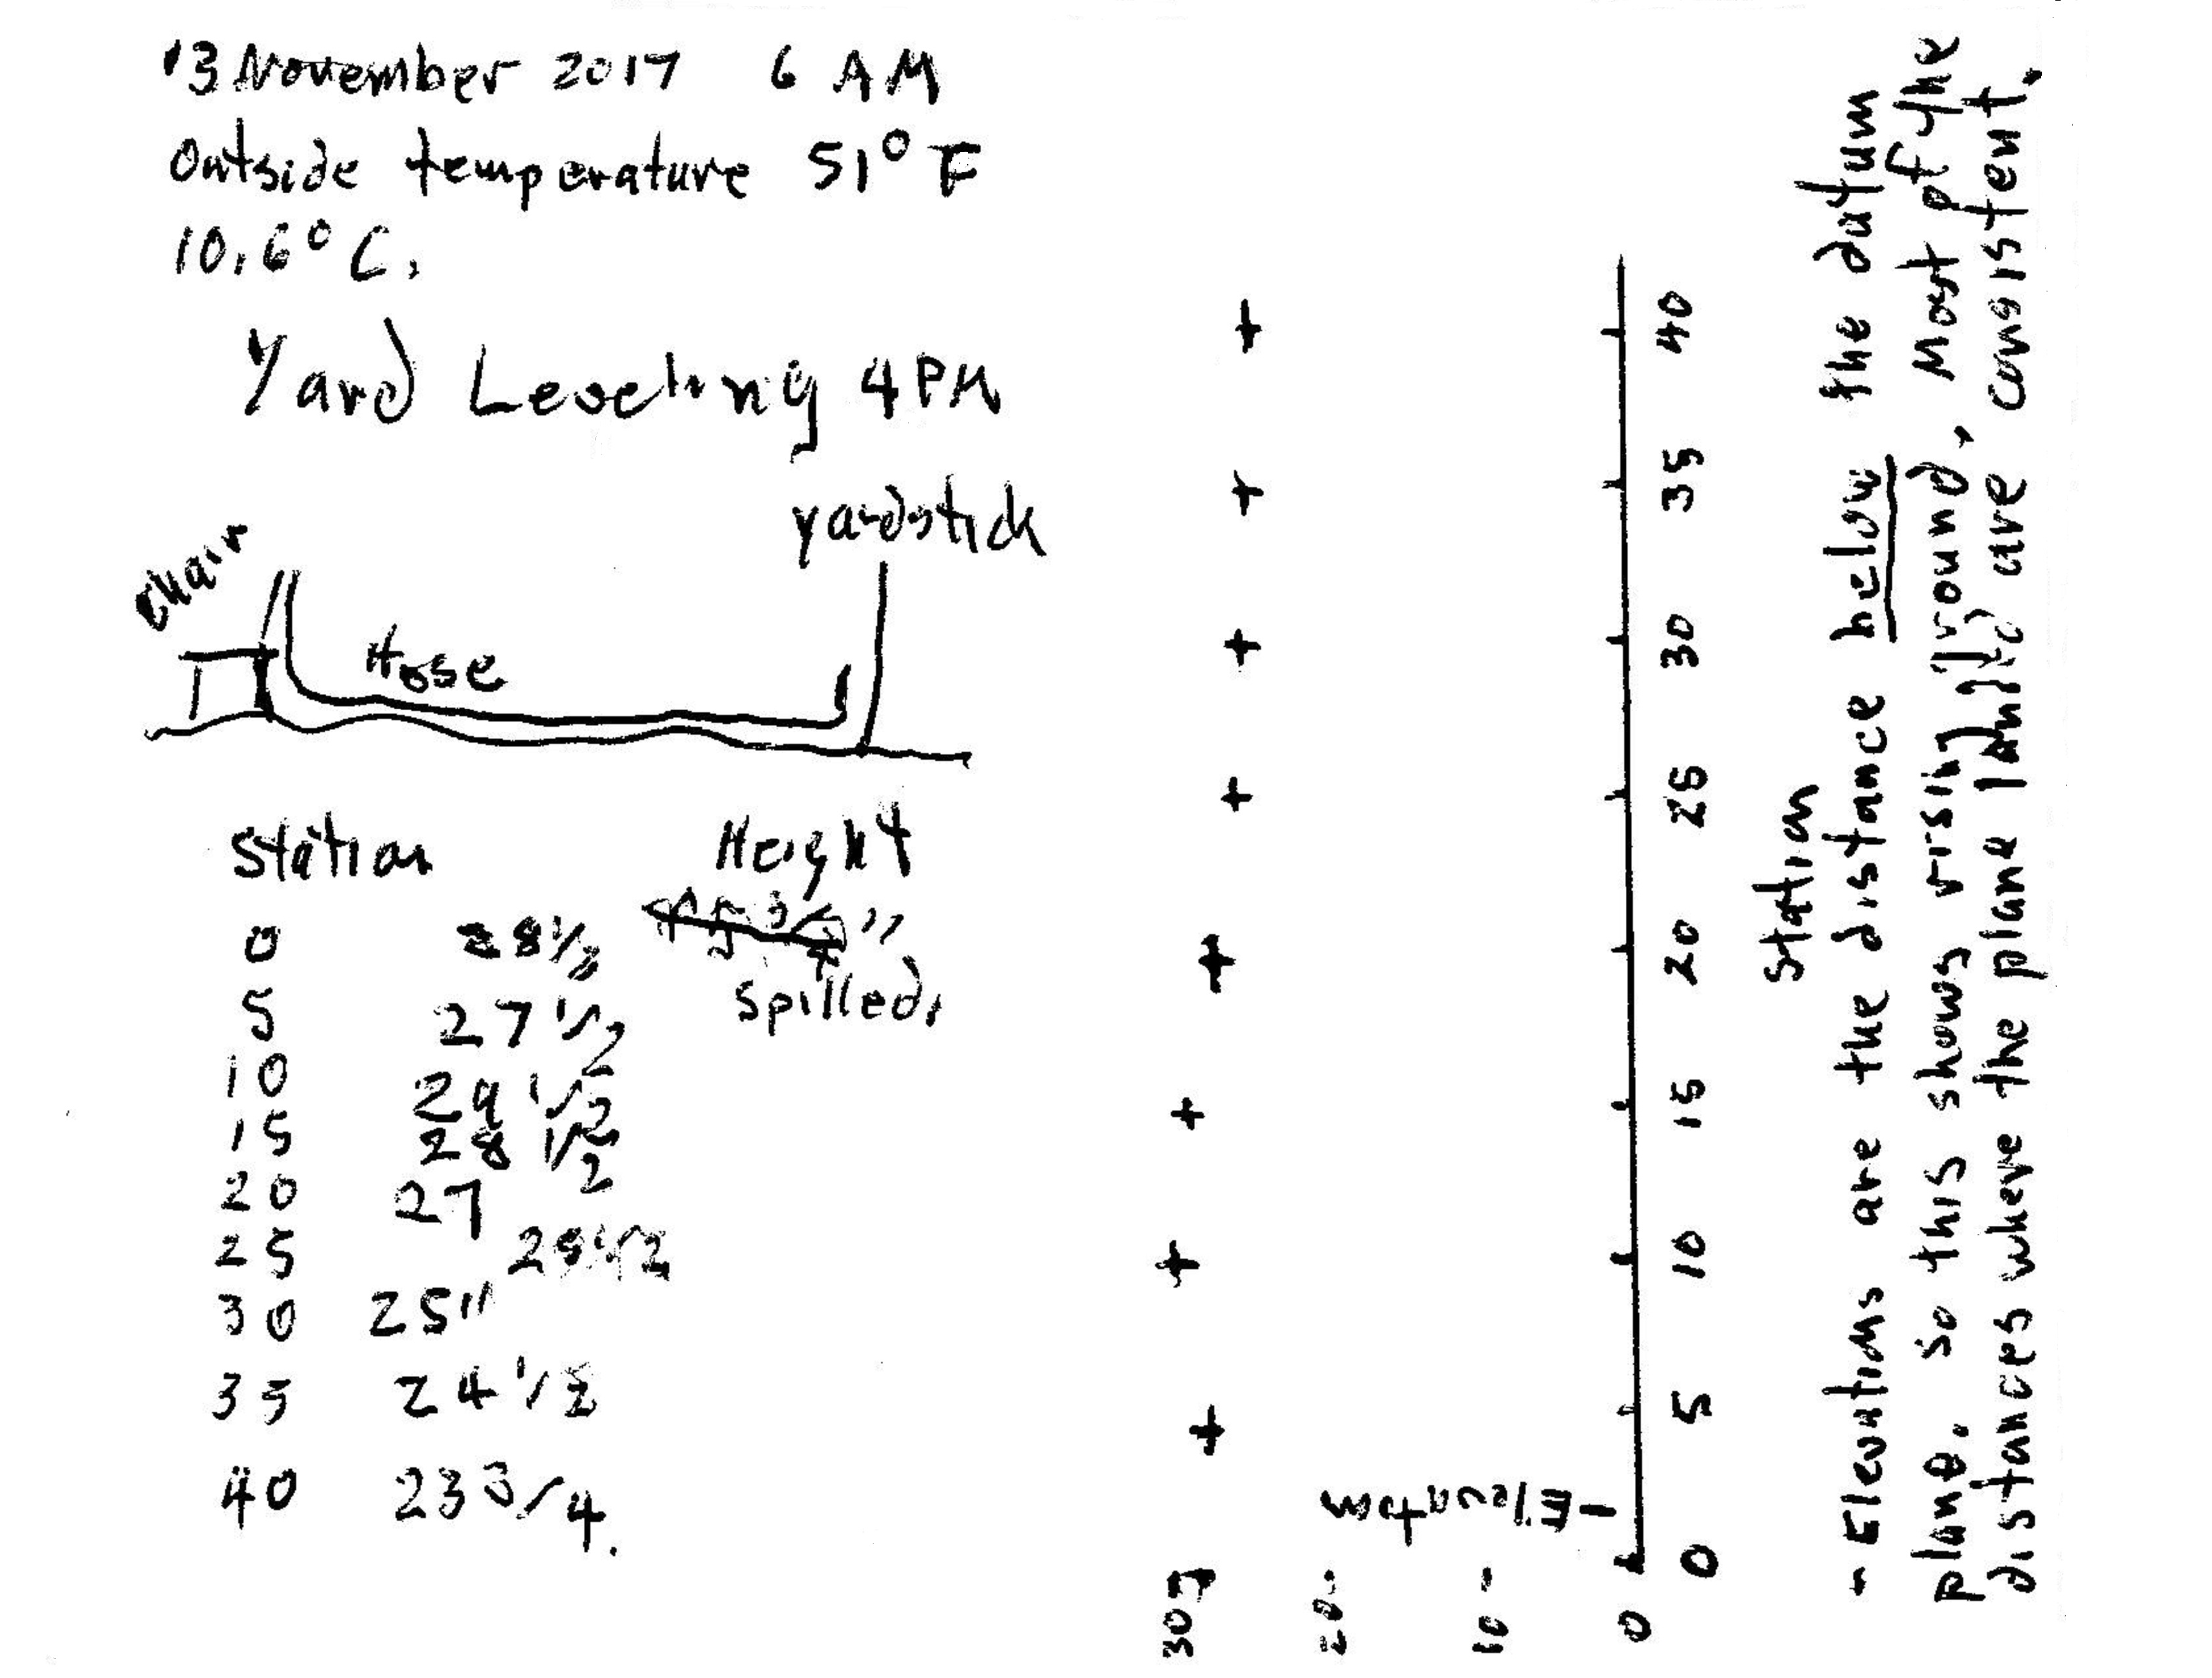 13 November 2017 6 AM
Outside temperature 51° F
10.6° C.
Yard Leveling 4 PM
yardstick
Chair
Hose
Station Height
0 28 1/2
spilled.
5 27 1/2
10 29 1/2
15 28 1/2
20 27
25 1/2
30 25"
35 24 1/2
40 23 3/4.
0 5 10 15 20 25 30 35 40
Station
-Elevation
0 10 20 30
- Elevations are the distance below the datum
plane. So this shows rising ground. Most of the
distances where the plane landed are consistent.